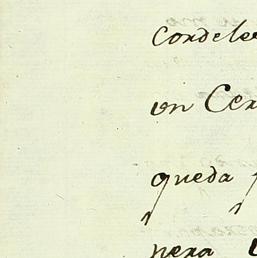 cordele
un Cer
queda
pera